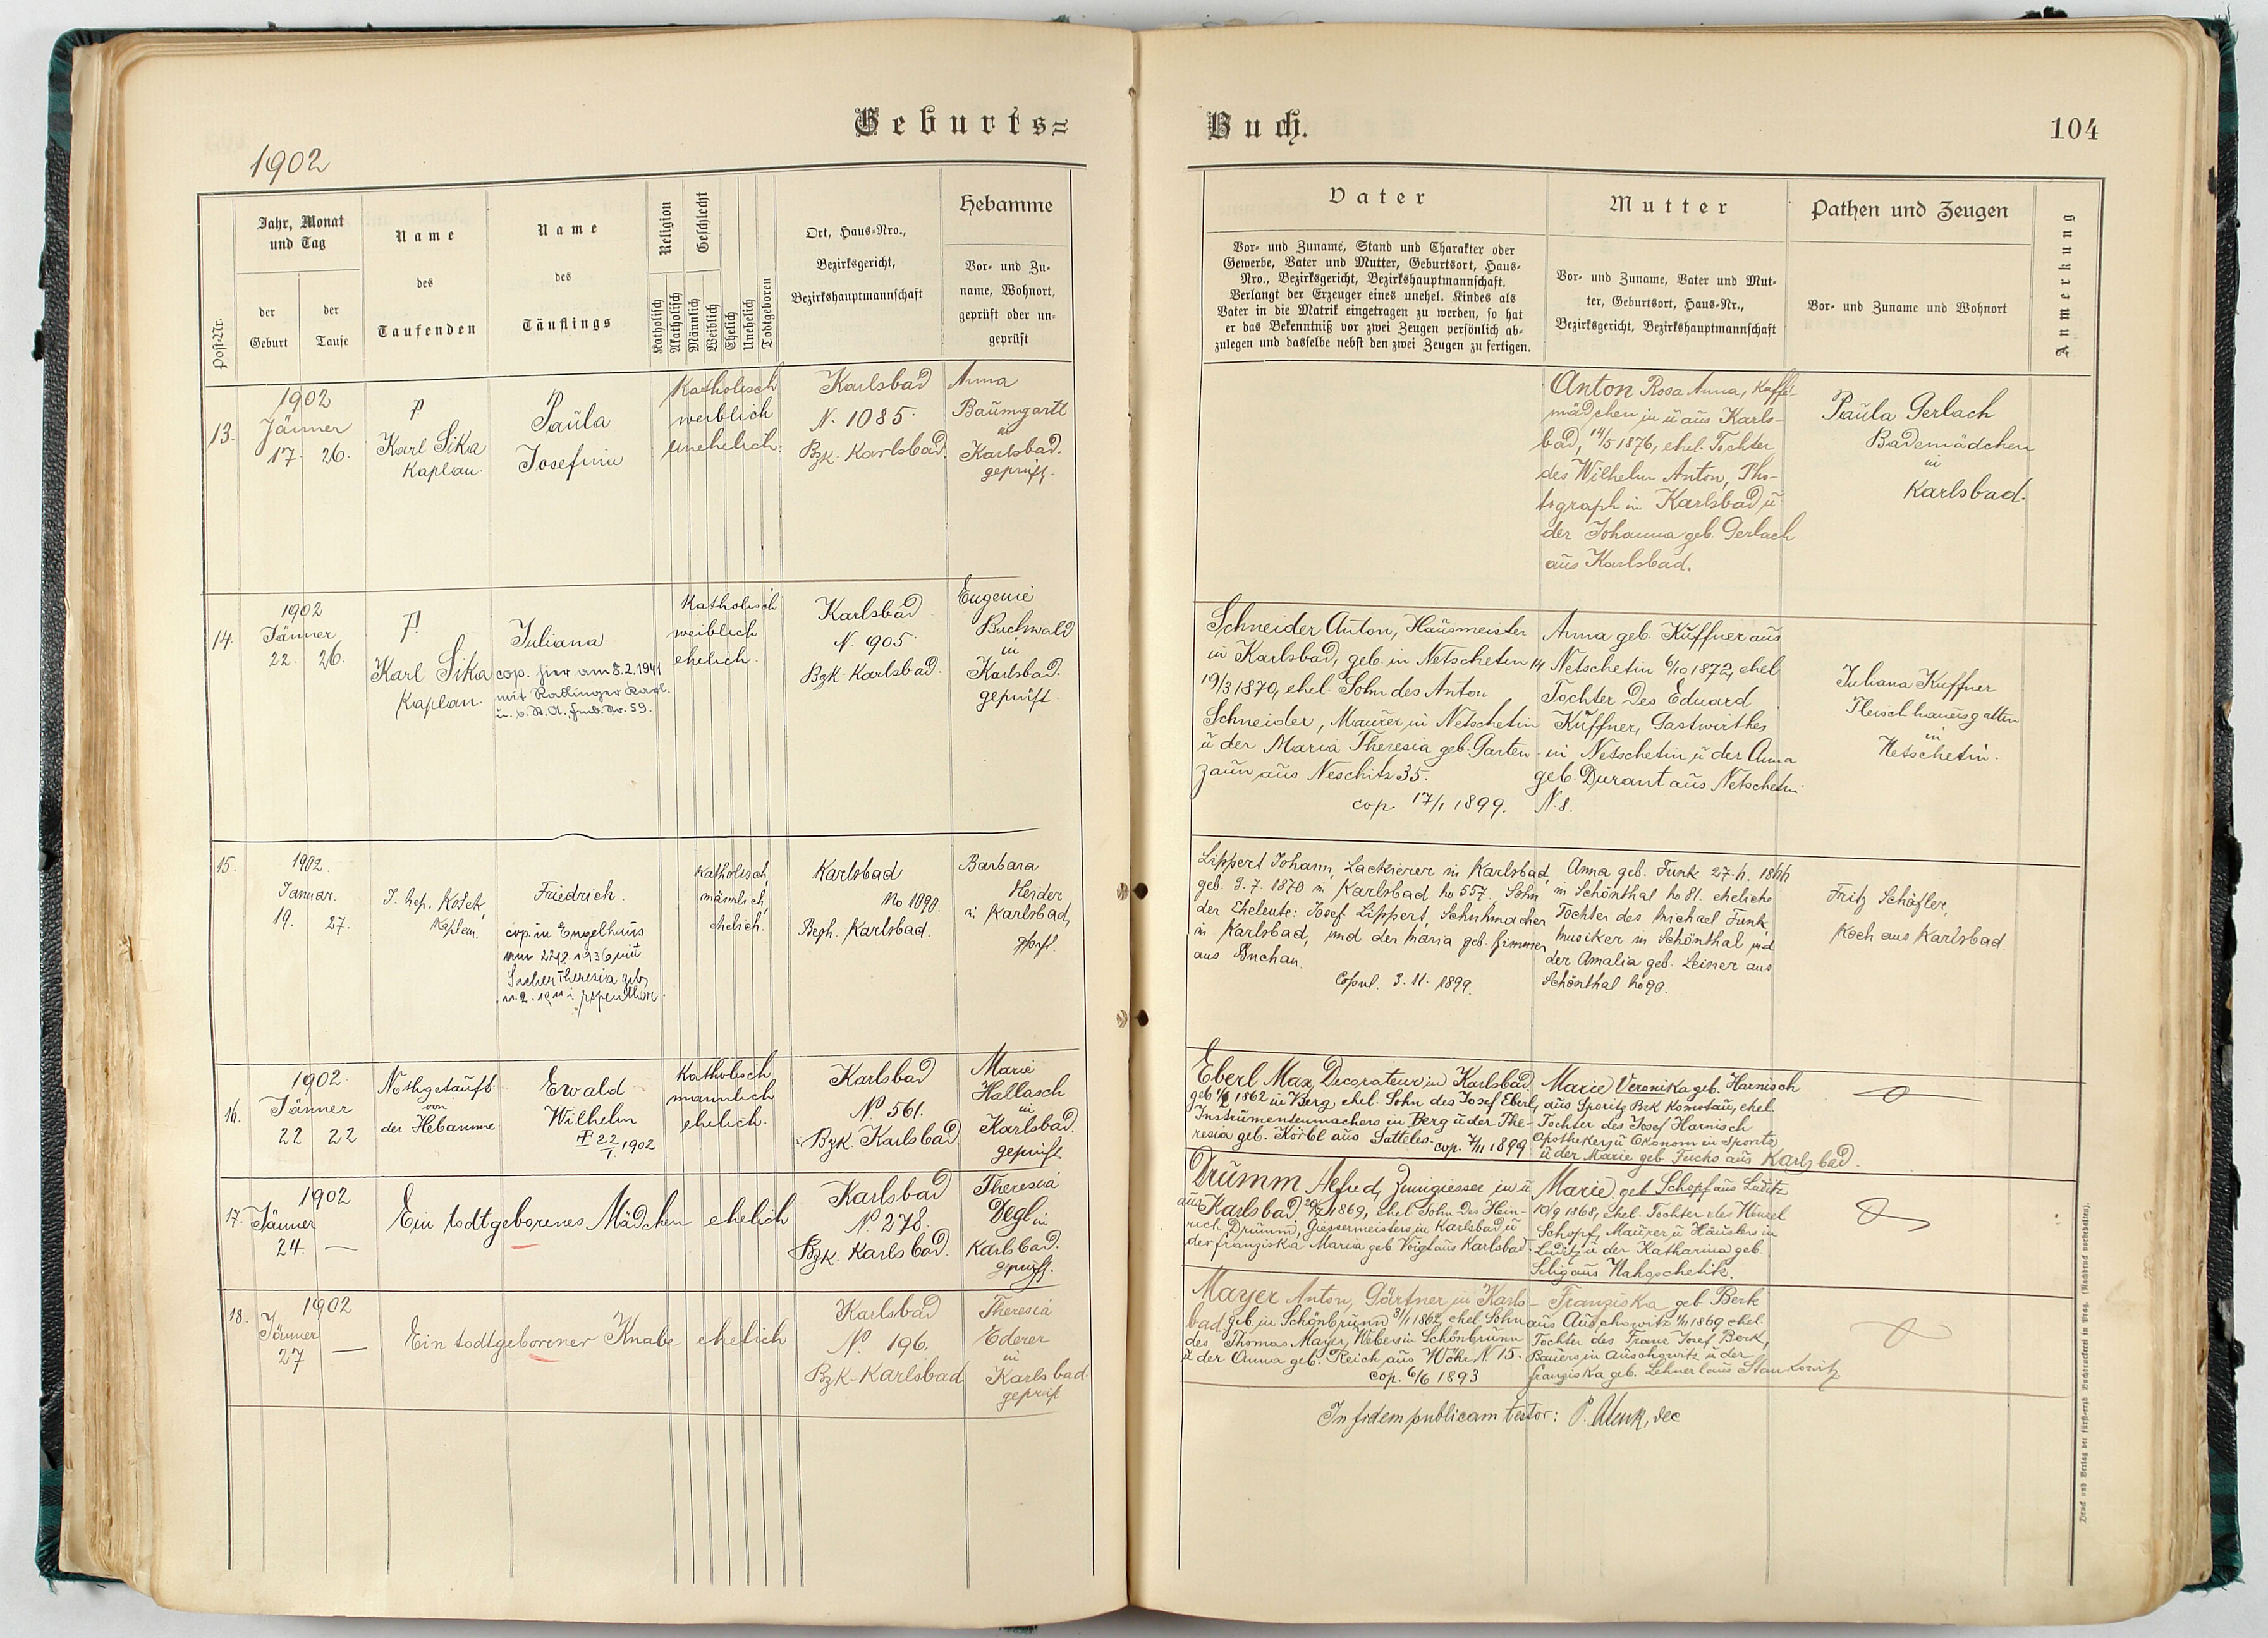 Geburts=
Buch.
104
1902
Post-Nr.
Jahr, Monat
und Tag
der
Geburt
der
Taufe
Name
des
Taufenden
Name
des
Täuflings
Religion
Katholisch
Akatholisch
Geschlecht
Männlich
Weiblich
Ehelich
Unehelich
Todtgeboren
Ort, Haus=Nro.,
Bezirksgericht,
Bezirkshauptmannschaft
Hebamme
Vor= und Zu=
name, Wohnort,
geprüft oder un=
geprüft
Vater
Vor= und Zuname, Stand und Charakter oder
Gewerbe, Vater und Mutter, Geburtsort, Haus=
Nro., Bezirksgericht, Bezirkshauptmannschaft.
Verlangt der Erzeuger eines unehel. Kindes als
Vater in die Matrik eingetragen zu werden, so hat
er das Bekenntniß vor zwei Zeugen persönlich ab=
zulegen und dasselbe nebst den zwei Zeugen zu fertigen.
Mutter
Vor= und Zuname, Vater und Mut=
ter, Geburtsort, Haus=Nr.,
Bezirksgericht, Bezirkshauptmannschaft
Pathen und Zeugen
Vor= und Zuname und Wohnort
Anmerkung
13.
1902
Jänner
17. 26.
P.
Karl Sika
Kaplan.
Paula
Josefina
Katholisch
weiblich
unehelich.
Karlsbad
N. 1085.
Bzk. Karlsbad.
Anna
Baumgartl
in
Karlsbad.
geprüft.
Anton Rosa Anna, Kaffe-
mädchen in u aus Karls-
bad, 14/5 1876, ehel. Tochter
des Wilhelm Anton, Pho-
tograph in Karlsbad u
der Johanna geb. Gerlach
aus Karlsbad.
Paula Gerlach
Bademädchen
in
Karlsbad.
14.
1902
Jänner
22. 26.
P.
Karl Sika
Kaplan.
Juliana
cop. hier am 8.2.1941
mit Rallinger Karl.
Katholisch
weiblich
ehelich.
Karlsbad
N. 905
Bzk. Karlsbad.
Eugenie
Buchwald
in
Karlsbad.
geprüft.
Schneider Anton, Hausmeister
in Karlsbad, geb. in Netschetin 14
19/3 1870, ehel. Sohn des Anton
Schneider, Maurer in Netschetin
u der Maria Theresia geb. Garten-
zaun aus Neschitz 35.
cop. 17/1 1899.
Anna geb. Kuffner aus
Netschetin 6/10 1872, ehel
Tochter des Eduard
Kuffner, Gastwirthes
in Netschetin u der Anna
geb. Durant aus Netschetin
N. 8.
Juliana Kuffner
Fleischhauersgattin
in
Netschetin.
15.
1902.
Januar.
19. 27.
J. Nep. Košek,
Kaplan.
Friedrich.
cop. in Engelhaus
Katholisch,
männlich,
ehelich.
Karlsbad
No 1090.
Bzgh. Karlsbad.
Barbara
Heider
in Karlsbad,
gepr.
Lippert Johann, Lackierer in Karlsbad,
geb. 9. 7. 1870 in Karlsbad No 557. Sohn
der Eheleute: Josef Lippert, Schuhmacher
in Karlsbad, und der Maria geb. Zimmer
aus Buchau.
Copul. 3. 11. 1899.
Anna geb. Funk
in Schönthal No 81. eheliche
Tochter des Michael Funk,
Musiker in Schönthal und
der Amalia geb. Leiner aus
Schönthal No 90.
Fritz Schäfler,
Koch aus Karlsbad.
16.
1902
Jänner
22 22
Nothgetauft
von
der Hebamme
Ewald
Wilhelm
† 22/I. 1902
Katholisch
männlich
ehelich.
Karlsbad
N. 561.
Bzk Karlsbad.
Marie
Hallasch
in
Karlsbad.
geprüft
Eberl Max, Decorateur in Karlsbad.
1862 in Berg, ehel. Sohn des Josef Eberl,
Instrumentenmachers in Berg u der The-
resia geb. Körbl aus Sattles. cop. 7/11 1899
Marie Veronika geb. Harnisch
aus Sporitz Bzk Komotau, ehel.
Tochter des Josef Harnisch
Apotheker u Ökonom in Sporitz
u der Marie geb. Fuchs aus Karlsbad.
17.
1902
Jänner
24. —
Ein todtgeborenes Mädchen ehelich
Karlsbad
N. 278.
Bzk. Karlsbad.
Theresia
Degl in
Karlsbad.
geprüft.
Drumm Alfred, Zinngiesser in u
aus Karlsbad 1869, ehel Sohn des Hein-
rich Drumm, Giessermeisters in Karlsbad u
der Franziska Maria geb Voigt aus Karlsbad.
Marie geb Schopf aus Luditz
10/9 1868, ehel. Tochter des Wenzel
Schopf, Maurer u Häuslers in
Luditz u der Katharina geb.
Selig aus
18.
1902
Jänner
27 —
Ein todtgeborener Knabe ehelich
Karlsbad
N. 196.
Bzk-Karlsbad
Theresia
Ederer
in
Karlsbad.
geprüft
Mayer Anton, Gärtner in Karls-
bad geb. in Schönbrunn 31/1 1862, ehel Sohn
des Thomas Mayer, Webers in Schönbrunn
u der Anna geb. Reich aus Wöhr N. 15.
cop. 6/6 1893
Franziska geb Berk
aus Auschowitz 1869 ehel.
Tochter des Franz Josef Berk,
Bauers in Auschowitz u der
Franziska geb. Lehnerl aus Stankowitz
In fidem publicam testor:
Druck und Verlag der fürst-erzb. Buchdruckerei in Prag. (Nachdruck vorbehalten).